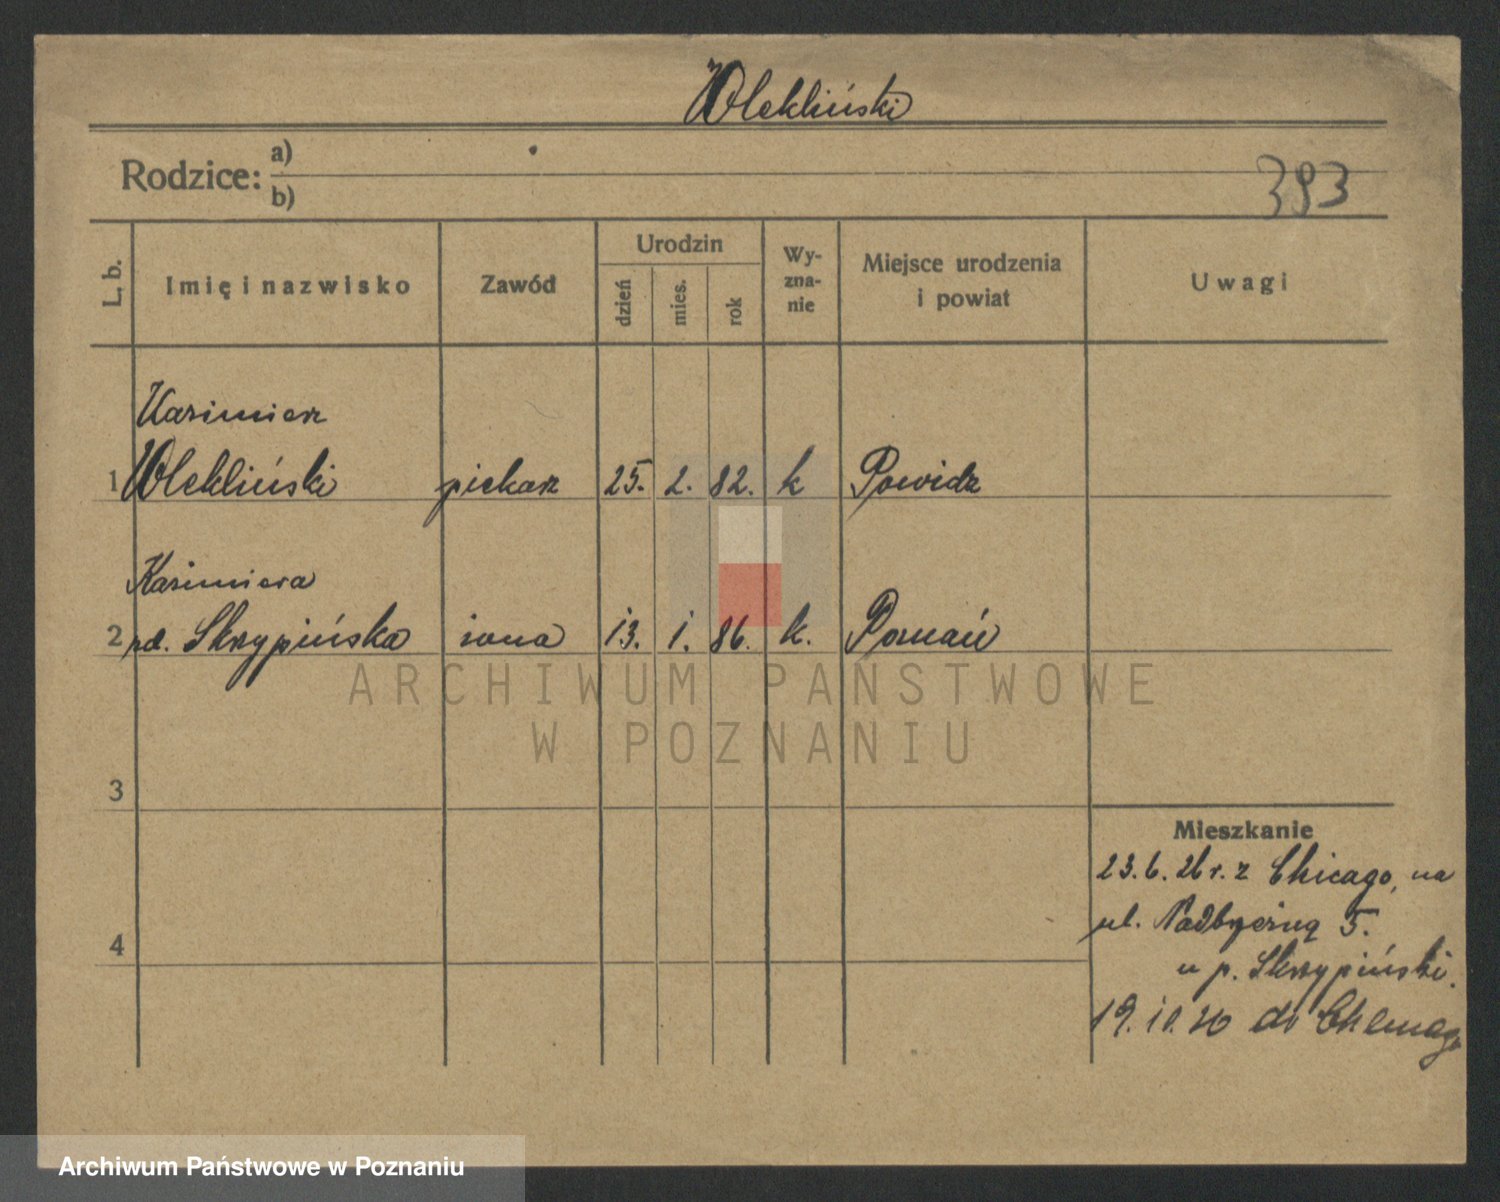 Wlekliński
Rodzice:
a)
b)
393
L. b.
Imię i nazwisko
Zawód
Urodzin
dzień
mies.
rok
Wy-
zna-
nie
Miejsce urodzenia
i powiat
Uwagi
Kazimierz
1 Wlekliński piekarz 25. 2. 82. k Powidz
Kazimiera
2 zd. Skrzypińska żona 13. 1. 86. k. Poznań
ARCHIWUM PAŃSTWOWE
W POZNANIU
3
Mieszkanie
23.6.26 r. z Chicago, na
ul. Nadbrzeżną 5.
4
u p. Skrzypiński.
19.10.26 do
Archiwum Państwowe w Poznaniu